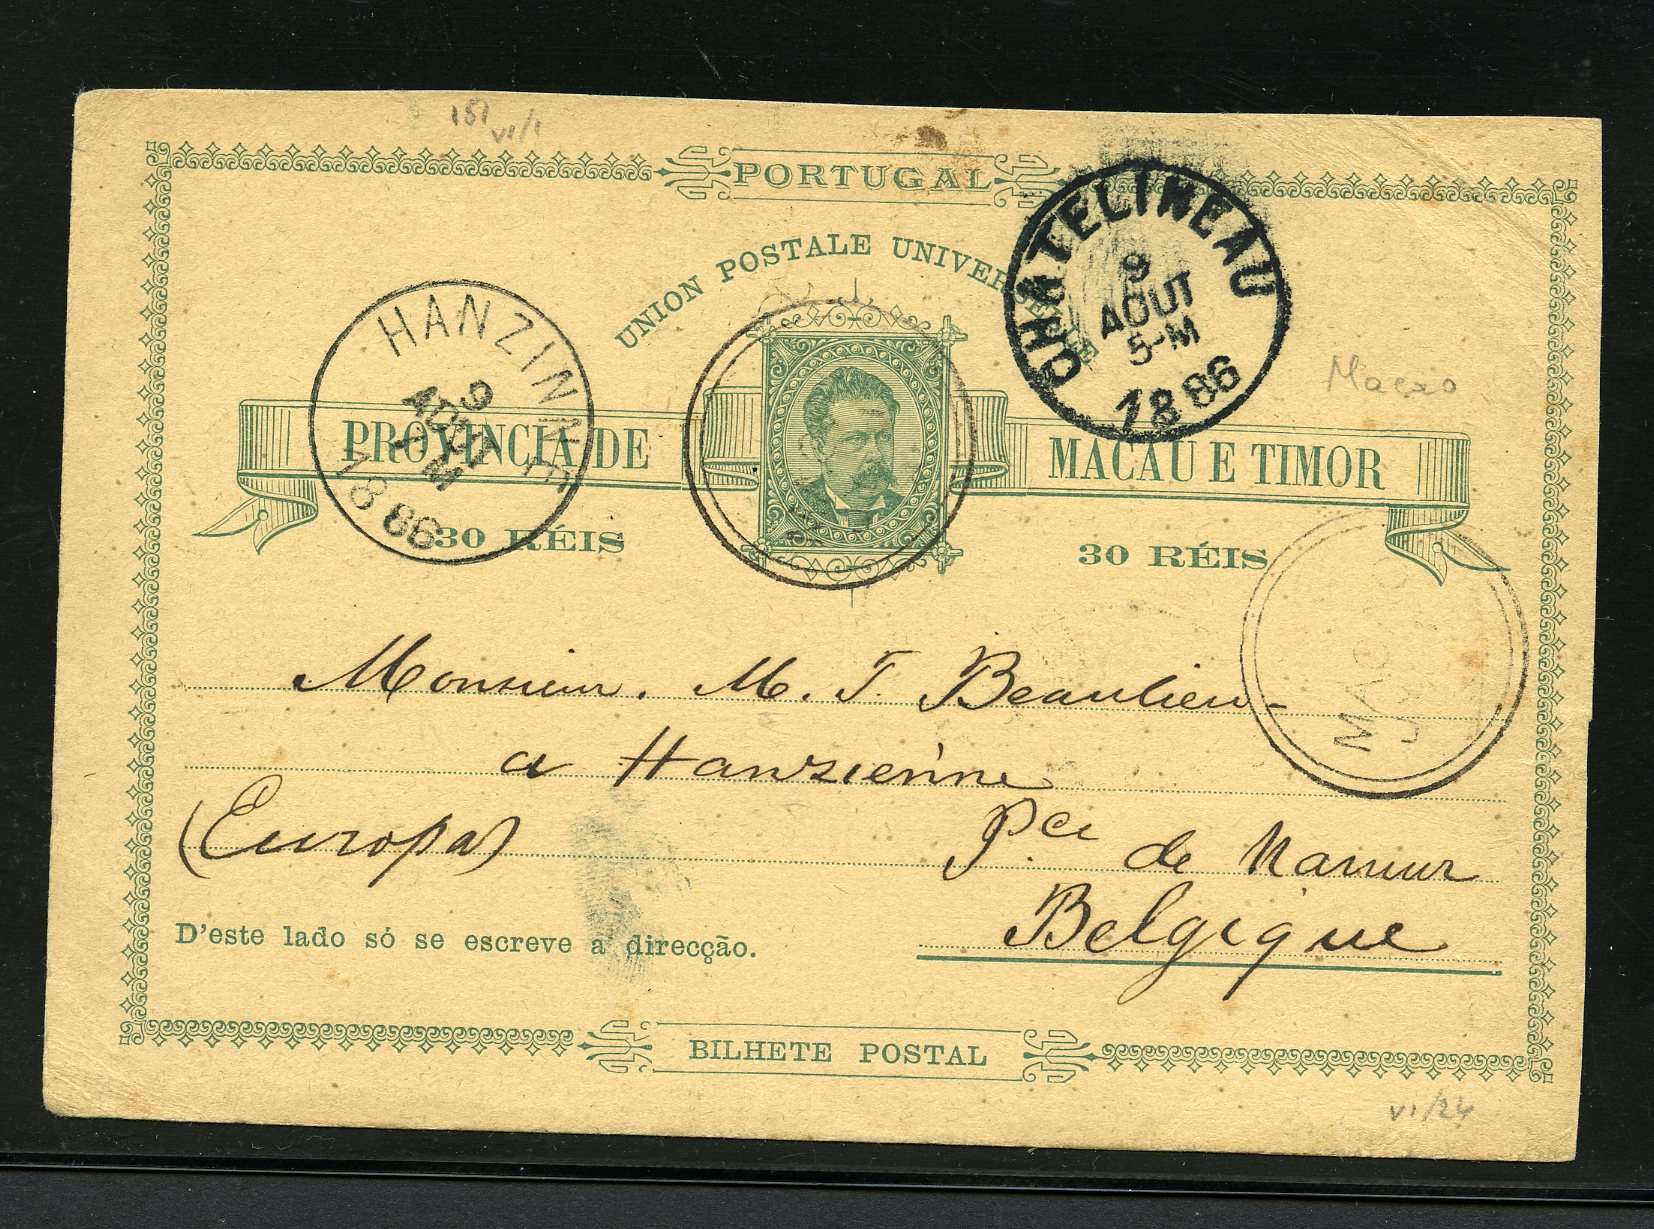 151
VI/1
PORTUGAL
UNION POSTALE UNIVERSELLE
CHATELINEAU
9
AOUT
5-M
1886
HANZINNE
9
AOUT
7 M
1886
Macao
PROVINCIA DE MACAU E TIMOR
30 RÉIS 30 RÉIS
MACAO
Monsieur. M. T. Beaulieu
a Hanzienne
(Europa) Pce de Namur
Belgique
D'este lado só se escreve a direcção.
BILHETE POSTAL
VI/24